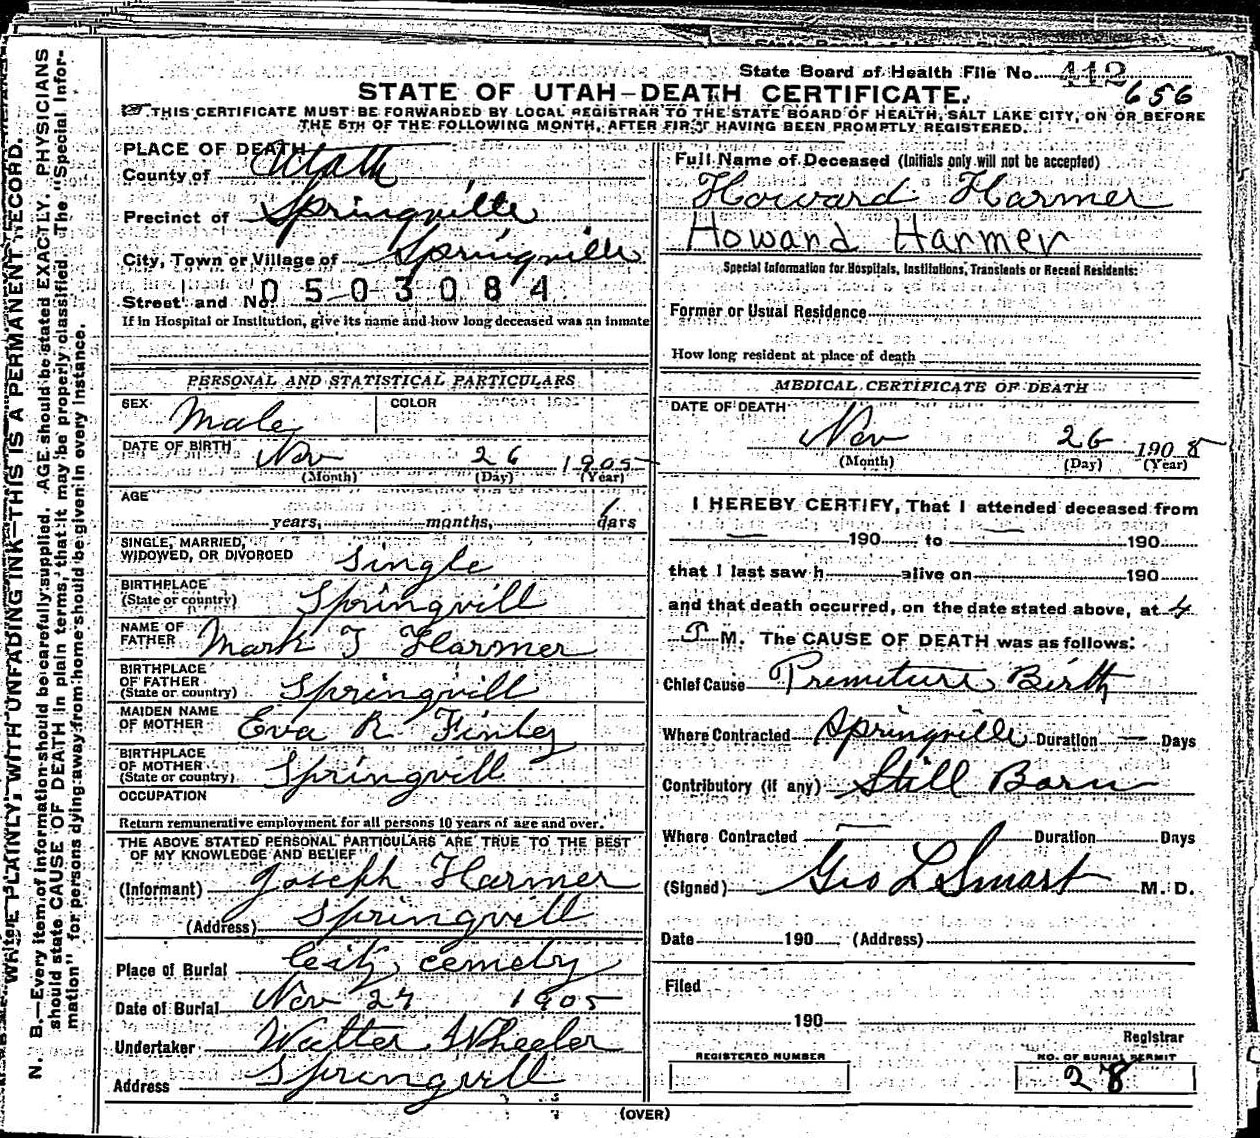 State Board of Health File No. 112
656
STATE OF UTAH—DEATH CERTIFICATE.
☞ THIS CERTIFICATE MUST BE FORWARDED BY LOCAL REGISTRAR TO THE STATE BOARD OF HEALTH, SALT LAKE CITY, ON OR BEFORE
THE 5TH OF THE FOLLOWING MONTH, AFTER FIRST HAVING BEEN PROMPTLY REGISTERED.
WRITE PLAINLY, WITH UNFADING INK—THIS IS A PERMANENT RECORD.
N. B.—Every item of information should be carefully supplied. AGE should be stated EXACTLY. PHYSICIANS
should state CAUSE OF DEATH in plain terms, that it may be properly classified. The "Special Infor-
mation" for persons dying away from home should be given in every instance.
PLACE OF DEATH
County of Utah
Precinct of Springville
City, Town or Village of Springville
Street and No. 0503084
If in Hospital or Institution, give its name and how long deceased was an inmate
PERSONAL AND STATISTICAL PARTICULARS
SEX Male COLOR
DATE OF BIRTH Nov 26 1905
(Month) (Day) (Year)
AGE
years, months, 1 days
SINGLE, MARRIED,
WIDOWED, OR DIVORCED Single
BIRTHPLACE
(State or country) Springvill
NAME OF
FATHER Mark T Harmer
BIRTHPLACE
OF FATHER
(State or country) Springvill
MAIDEN NAME
OF MOTHER Eva R Finley
BIRTHPLACE
OF MOTHER
(State or country) Springvill
OCCUPATION
Return remunerative employment for all persons 10 years of age and over.
THE ABOVE STATED PERSONAL PARTICULARS ARE TRUE TO THE BEST
OF MY KNOWLEDGE AND BELIEF
(Informant) Joseph Harmer
(Address) Springvill
Place of Burial City cemetry
Date of Burial Nov 27 1905
Undertaker Walter Wheeler
Address Springvill
Full Name of Deceased (Initials only will not be accepted)
Howard Harmer
Howard Harmer
Special Information for Hospitals, Institutions, Transients or Recent Residents:
Former or Usual Residence
How long resident at place of death
MEDICAL CERTIFICATE OF DEATH
DATE OF DEATH
Nov 26 1905
(Month) (Day) (Year)
I HEREBY CERTIFY, That I attended deceased from
— 190 to — 190
that I last saw h alive on 190
and that death occurred, on the date stated above, at 4
P M. The CAUSE OF DEATH was as follows:
Chief Cause Premature Birth
Where Contracted Springville Duration — Days
Contributory (if any) Still Born
Where Contracted — Duration Days
(Signed) Geo L Smart M. D.
Date 190 (Address)
Filed
190
Registrar
REGISTERED NUMBER
NO. OF BURIAL PERMIT
28
(OVER)